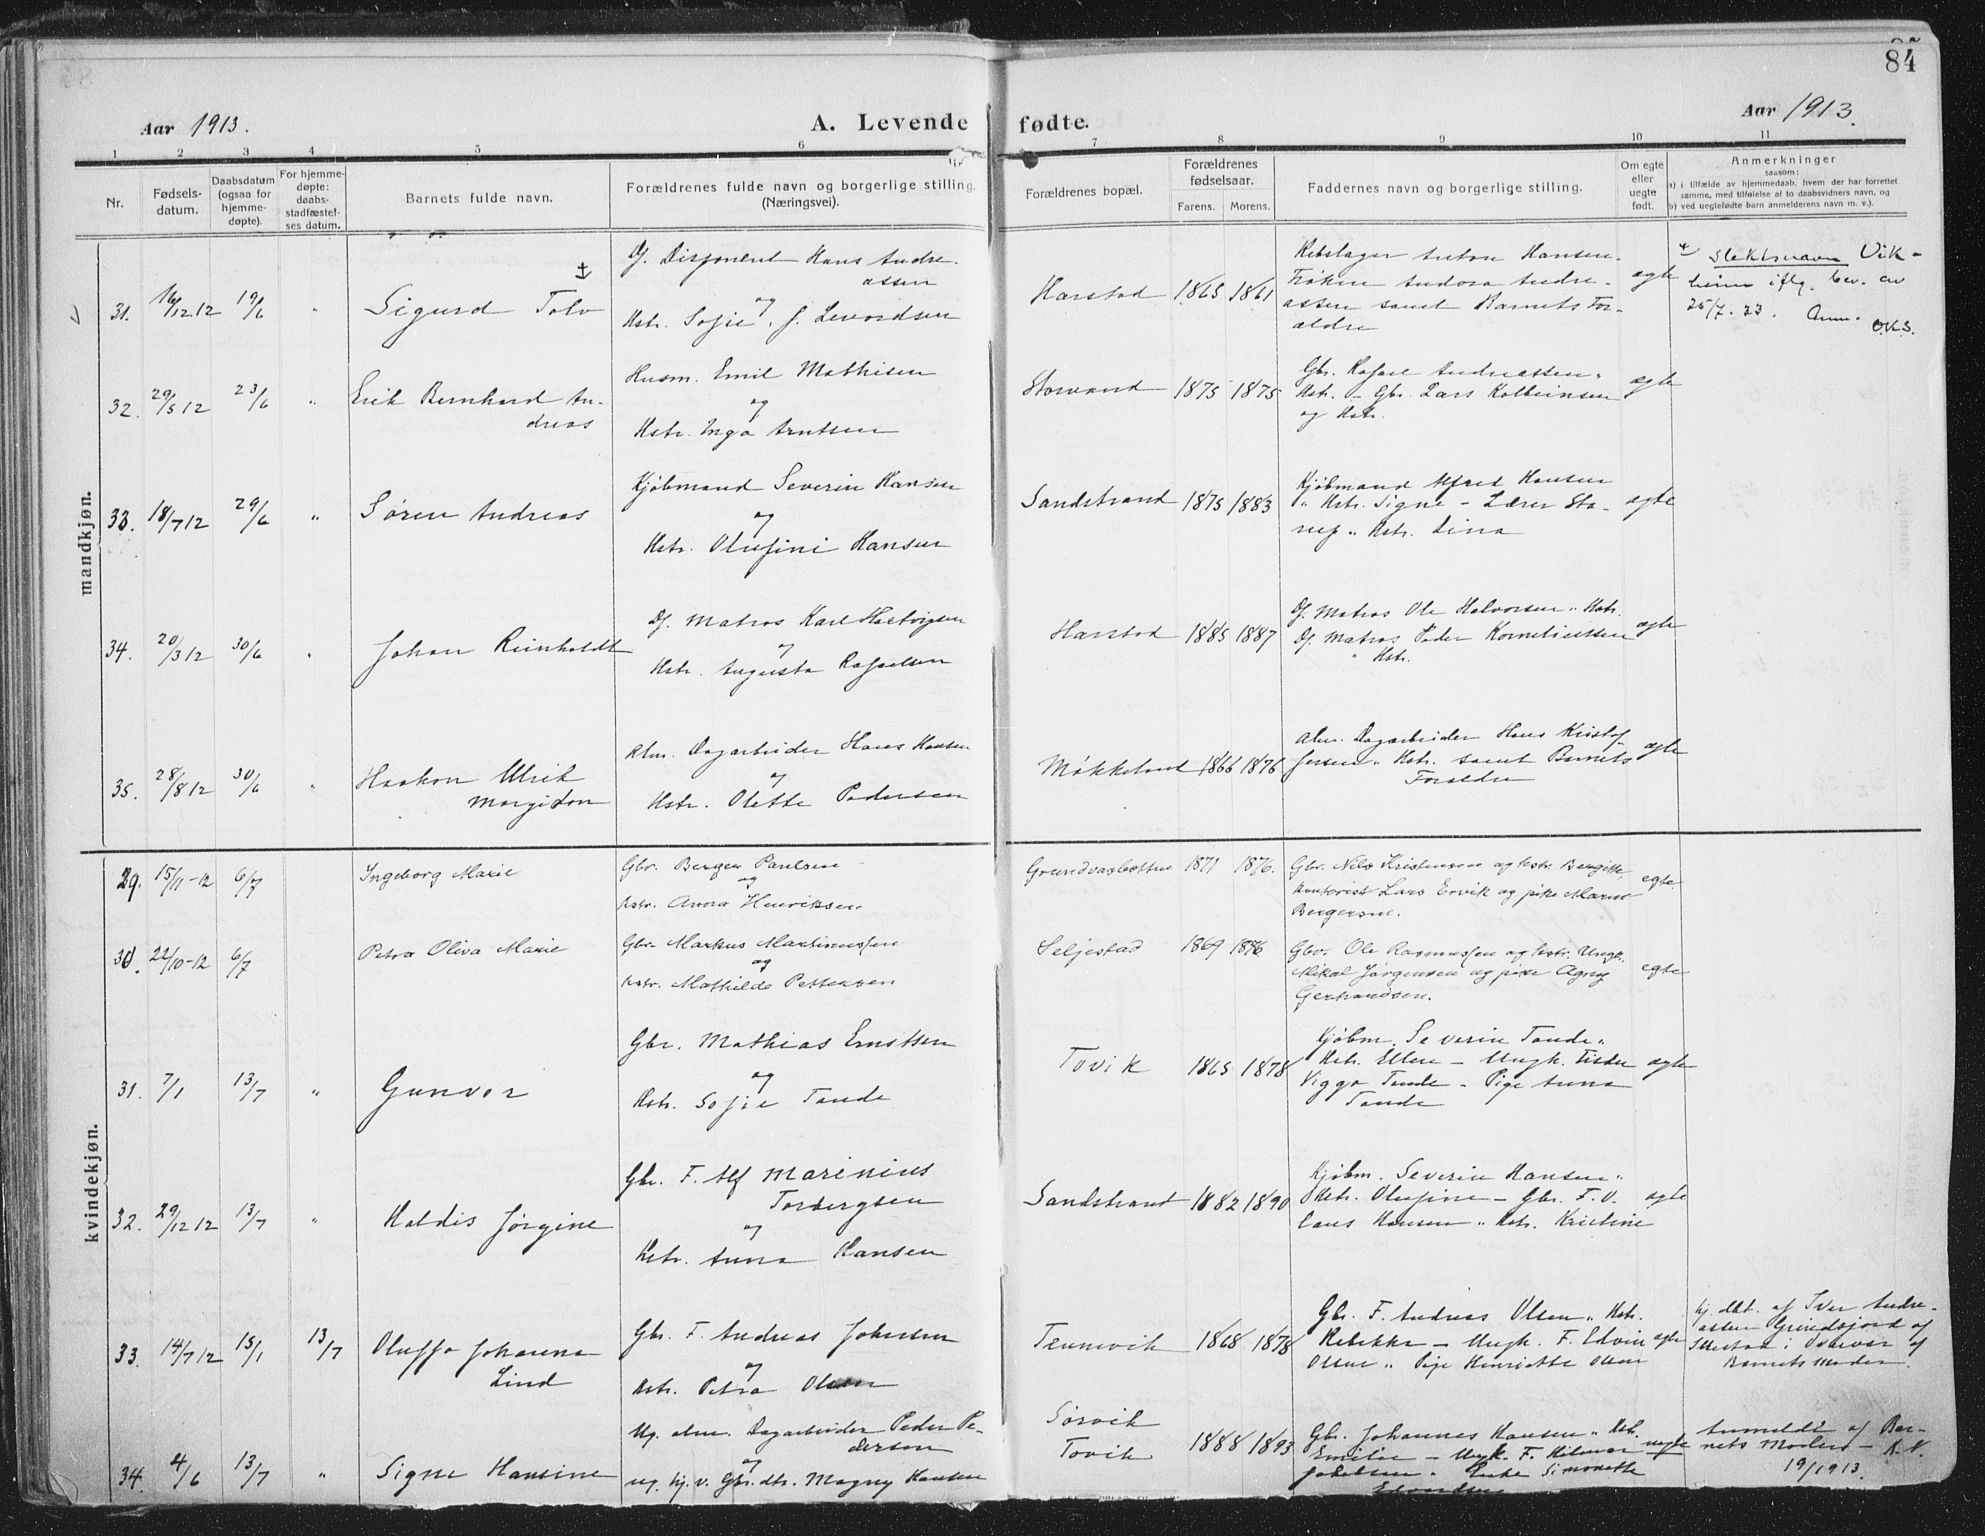 84
Aar 1913.
A. Levende fødte.
Aar 1913.
1 2 3 4 5 6 7 8 9 10 11
Nr.
Fødsels-
datum.
Daabsdatum
(ogsaa for
hjemme-
døpte).
For hjemme-
døpte:
daabs-
stadfæstet-
ses datum.
Barnets fulde navn.
Forældrenes fulde navn og borgerlige stilling.
(Næringsvei).
Forældrenes bopæl.
Forældrenes
fødselsaar.
Farens. Morens.
Faddernes navn og borgerlige stilling.
Om egte
eller
uegte
født.
Anmerkninger
saasom:
a) i tilfælde av hjemmedaab, hvem der har forrettet
samme, med tilføielse af to daabsvidners navn, og
b) ved uegtefødte barn anmelderens navn m. v.).
mandkjøn.
31. 16/12 12 19/6 " Sigurd Tolv
Df. Disponent Hans Andre-
assen
og
Hstr. Sofie, f. Levordsen
Harstad 1865 1861
Rebslager Anton Hansen -
Frøken Andora Andre-
assen samt Barnets For-
ældre
ægte
slektsnavn Vik-
heim iflg. bev. av
25/7. 23. Anm. O.K.S.
32. 29/5 12 23/6 " Erik Bernhard An-
dreas
Husm. Emil Mathisen
og
Hstr. Inga Arntsen
Storvand 1875 1875
Gbr. Rafael Andreassen "
Hstr. - Gbr. Lars Kolbeinsen
og Hstr.
ægte
33. 18/7 12 29/6 " Søren Andreas
Kjøbmand Severin Hansen
og
Hstr. Olufini Hansen
Sandstrand 1875 1883
Kjøbmand Alfred Hansen
" Hstr. Signe - Lærer Sta-
nes " Hstr. Lina
ægte
34. 20/3 12 30/6 " Johan Reinholdt
Df. Matros Karl Hartvigsen
og
Hstr. Augusta Rafaelsen
Harstad 1885 1887
Df. Matros Ole Halvorsen " Hstr.
Df. Matros Peder Korneliussen
" Hstr.
ægte
35. 28/8 12 30/6 " Haakon Ulrik
Margidon
Alm. Dagarbeider Hans Hansen
og
Hstr. Olette Pedersen
Møkkeland 1866 1876
Alm. Dagarbeider Hans Kristof-
fersen " Hstr. samt Barnets
Forældre
ægte
kvindekjøn.
29. 15/11-12 6/7 Ingeborg Marie
Gbr. Berger Paulsen
og
hstr. Anna Henriksen.
Grundvasbotten 1871 1876.
Gbr. Nels Kristensen og hstr. Bergitte,
kontorist Lars Ervik og pike Maren
Bergersen.
egte.
30. 22/10-12 6/7 Petra Oliva Marie
Gbr. Markus Martinussen
og
hstr. Mathilde Pettersen
Seljestad 1869 1876
Gbr. Ole Rasmussen og hstr. Ungk.
Mikal Jørgensen og pike Agny
Gertrandsen.
egte
31. 7/1 13/7 " Gunvor
Gbr. Mathias Ernstsen
og
Hstr. Sofie Tande
Tovik 1865 1878
Kjøbm. Severin Tande "
Hstr. Ellen - Ungk. Fisker
Viggo Tande - Pige Anna
Tande
ægte
32. 29/12 12 13/7 " Haldis Jørgine
Gbr. F. Alf Marinius
Torbergsen
og
Hstr. Anna Hansen
Sandstrand 1882 1890
Kjøbm. Severin Hansen "
Hstr. Olufine - Gbr. F. V.
Laus Hansen " Hstr. Kristine
ægte
33. 14/7 12 15/1 13/7 Oluffa Johanna
Lind
Gbr. F. Andreas Johnsen
og
Hstr. Petra Olsen
Tennevik 1868 1878
Gbr. F. Andreas Olsen " Hstr.
Rebekka - Ungk. F. Edvin
Olsen " Pige Henriette Olsen
ægte
Hj. dbt. af Iver Andre-
assen Grindfjord af
Barnets Moder.
34. 4/6 13/7 " Signe Hansine
Ug. alm. Dagarbeider Peder Pe-
dersen
og
ug. hj. v. Gbr. dtr. Magny Hansen
Sørvik
Tovik
1888 1893
Gbr. Johannes Hansen " Hstr.
Emilie - Ungk. F. Hilmar
Jakobsen " Enke Simonette
Edvardsen
uegte
Anmeldt af Bar-
nets Moder -
19/1913. R. V.